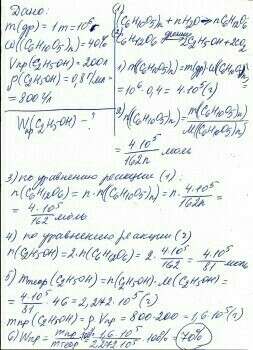 Дано:
m(др) = 1 т = 10⁶ г
ω((C₆H₁₀O₅)ₙ) = 40%
Vпр(C₂H₅OH) = 200 л
ρ(C₂H₅OH) = 0,8 г/мл
= 800 г/л
Wпр(C₂H₅OH) - ?
(1)
(C₆H₁₀O₅)ₙ + nH₂O → nC₆H₁₂O₆
(2)
C₆H₁₂O₆ → 2C₂H₅OH + 2CO₂
1) m((C₆H₁₀O₅)ₙ) = m(др)·ω((C₆H₁₀O₅)ₙ) =
= 10⁶·0,4 = 4·10⁵ (г)
2) n((C₆H₁₀O₅)ₙ) = m((C₆H₁₀O₅)ₙ) / M((C₆H₁₀O₅)ₙ) =
= 4·10⁵ / 162n моль
3) по уравнению реакции (1):
n(C₆H₁₂O₆) = n·n((C₆H₁₀O₅)ₙ) = n·4·10⁵ / 162n =
= 4·10⁵ / 162 моль
4) по уравнению реакции (2)
n(C₂H₅OH) = 2·n(C₆H₁₂O₆) = 2·4·10⁵ / 162 = 4·10⁵ / 81 моль
5) mтеор(C₂H₅OH) = n(C₂H₅OH)·M(C₂H₅OH) =
= 4·10⁵ / 81 · 46 = 2,272·10⁵ (г)
mпр(C₂H₅OH) = ρ·Vпр = 800·200 = 1,6·10⁵ (г)
6) Wпр = mпр / mтеор = 1,6·10⁵ / 2,272·10⁵ · 100% = 70%